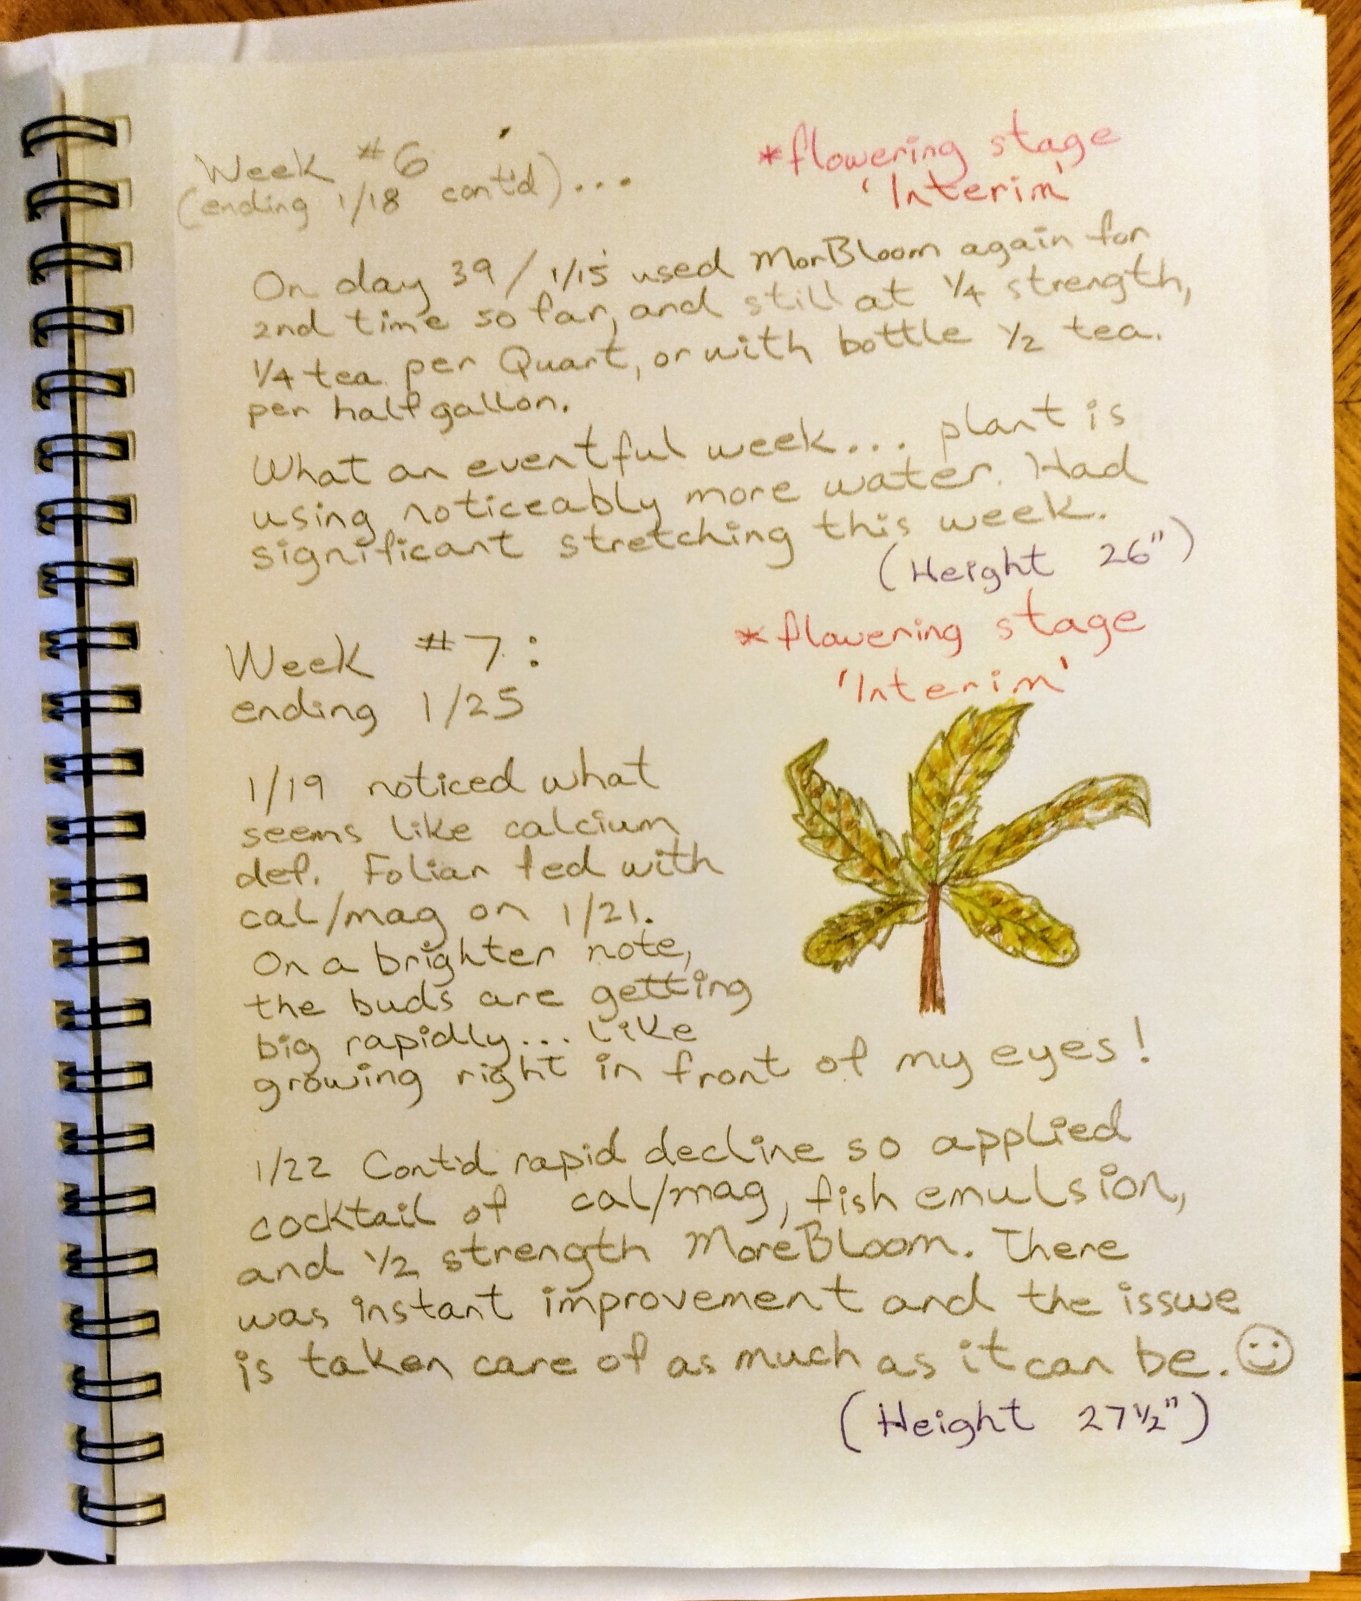 Week #6
(ending 1/18 cont'd)...
*flowering stage
'Interim'
On day 39/1/15 used MorBloom again for
2nd time so far, and still at 1/4 strength,
1/4 tea per Quart, or with bottle 1/2 tea.
per half gallon.
What an eventful week... plant is
using noticeably more water. Had
significant stretching this week.
(Height 26")
Week #7:
ending 1/25
*flowering stage
'Interim'
1/19 noticed what
seems like calcium
def. Foliar fed with
cal/mag on 1/21.
On a brighter note,
the buds are getting
big rapidly... like
growing right in front of my eyes!
1/22 Cont'd rapid decline so applied
cocktail of cal/mag, fish emulsion,
and 1/2 strength MoreBloom. There
was instant improvement and the issue
is taken care of as much as it can be.
(Height 27 1/2")